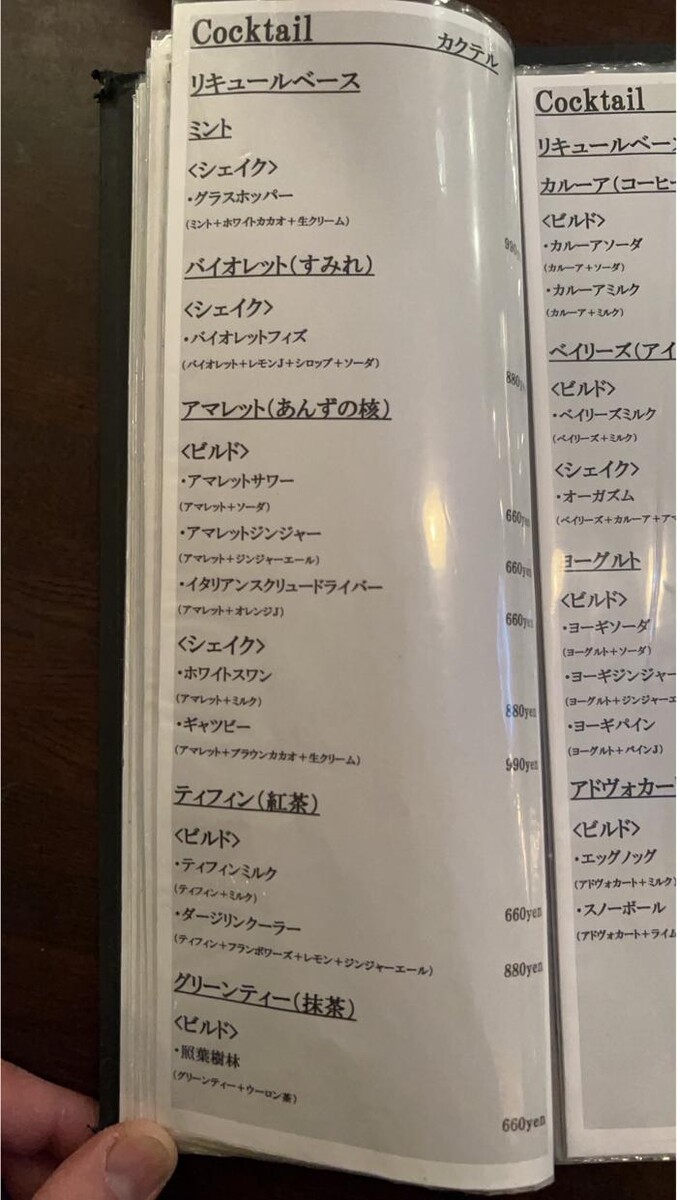 Cocktail
カクテル
リキュールベース
ミント
<シェイク>
・グラスホッパー
(ミント+ホワイトカカオ+生クリーム)
990yen
バイオレット(すみれ)
<シェイク>
・バイオレットフィズ
(バイオレット+レモンJ+シロップ+ソーダ)
880yen
アマレット(あんずの核)
<ビルド>
・アマレットサワー
(アマレット+ソーダ)
660yen
・アマレットジンジャー
(アマレット+ジンジャーエール)
660yen
・イタリアンスクリュードライバー
(アマレット+オレンジJ)
660yen
<シェイク>
・ホワイトスワン
(アマレット+ミルク)
880yen
・ギャツビー
(アマレット+ブラウンカカオ+生クリーム)
990yen
ティフィン(紅茶)
<ビルド>
・ティフィンミルク
(ティフィン+ミルク)
660yen
・ダージリンクーラー
(ティフィン+フランボワーズ+レモン+ジンジャーエール)
880yen
グリーンティー(抹茶)
<ビルド>
・照葉樹林
(グリーンティー+ウーロン茶)
660yen
Cocktail
リキュールベー
カルーア(コーヒー
<ビルド>
・カルーアソーダ
(カルーア+ソーダ)
・カルーアミルク
(カルーア+ミルク)
ベイリーズ(アイ
<ビルド>
・ベイリーズミルク
(ベイリーズ+ミルク)
<シェイク>
・オーガズム
(ベイリーズ+カルーア+アマ
ヨーグルト
<ビルド>
・ヨーギソーダ
(ヨーグルト+ソーダ)
・ヨーギジンジャー
(ヨーグルト+ジンジャーエ
・ヨーギパイン
(ヨーグルト+パインJ)
アドヴォカー
<ビルド>
・エッグノッグ
(アドヴォカート+ミルク)
・スノーボール
(アドヴォカート+ライム